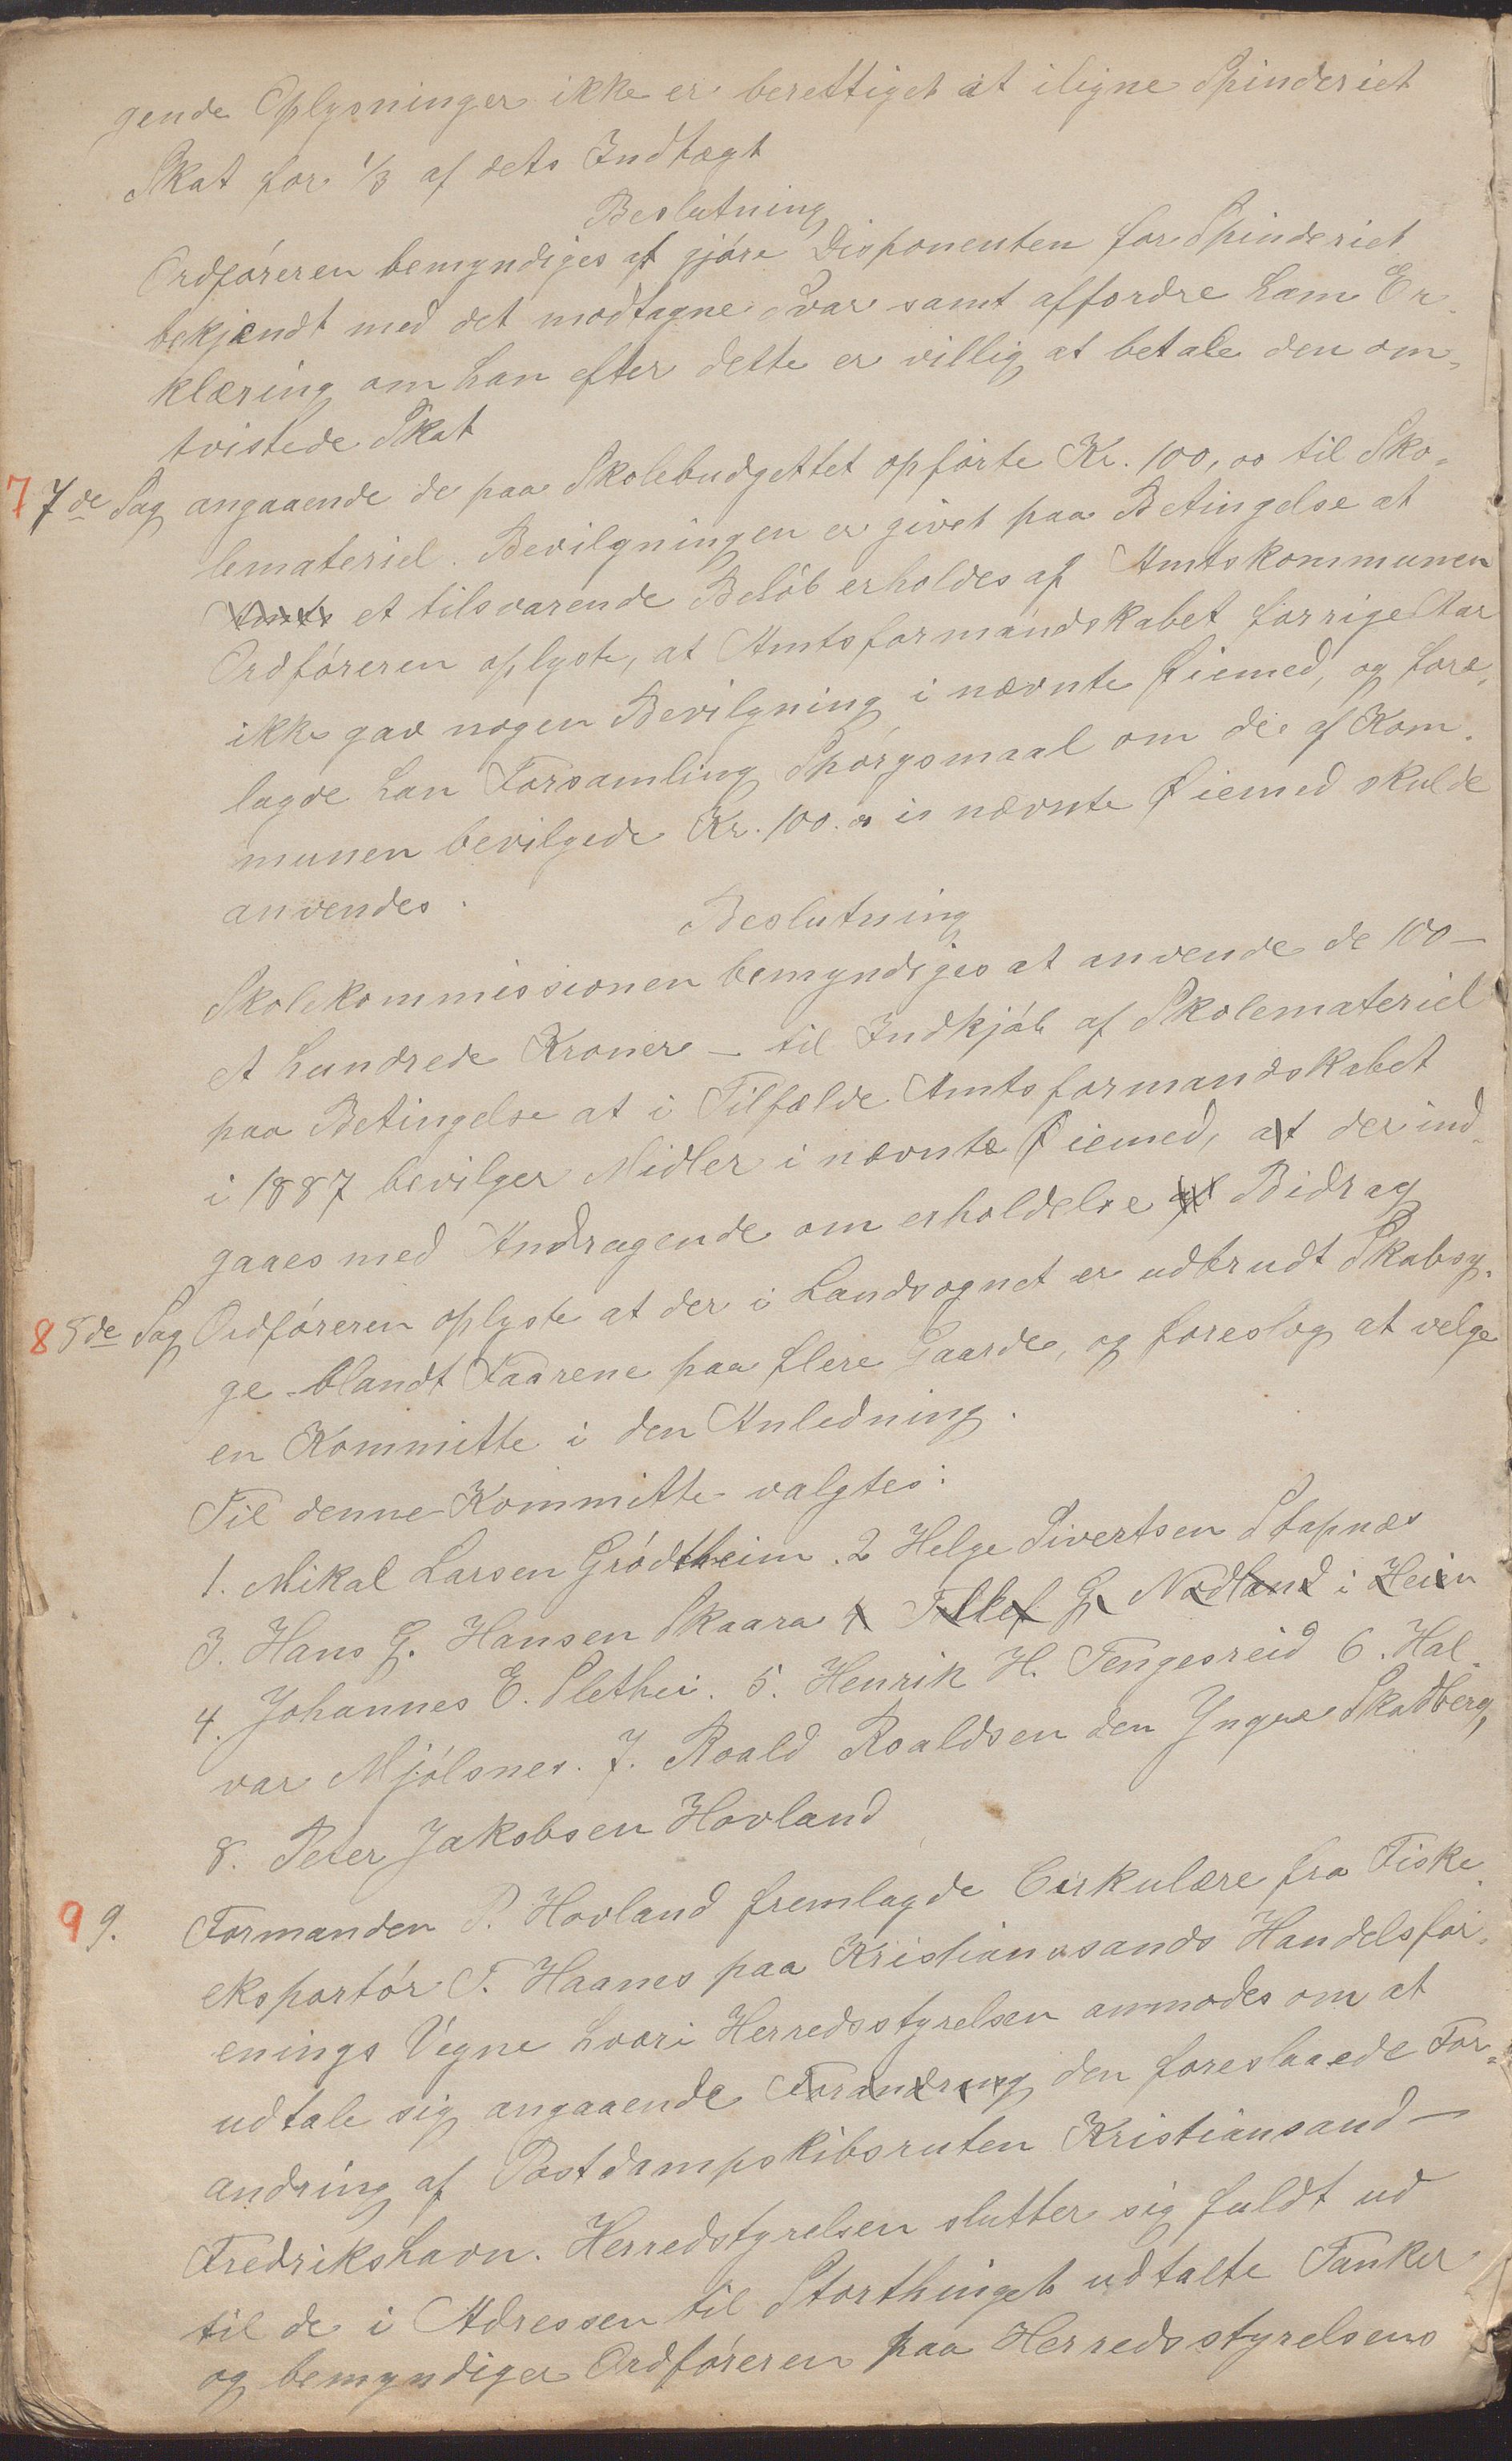 gende Oplysninger ikke er berettiget at iligne Spinderiet
Skat for 1/3 af dets Indtægt
Beslutning
Ordføreren bemyndiges at gjøre Disponenten for Spinderiet
bekjændt med det modtagne Svar samt affordre ham Er-
klæring om han efter dette er villig at betale den om-
tvistede Skat
7 7de Sag angaaende de paa Skolebudgettet opførte Kr. 100,00 til Sko-
lemateriel. Bevilgningen er givet paa Betingelse at
Amts et tilsvarende Beløb erholdes af Amtskommunen
Ordføreren oplyste, at Amtsformandskabet forrige Aar
ikke gav nogen Bevilgning i nævnte Øiemed, og fore-
lagde han Forsamling Spørgsmaal om de af Kom-
munen bevilgede Kr. 100.00 i nævnte Øiemed skulde
anvendes.
Beslutning
Skolekommissionen bemyndiges at anvende de 100 –
et hundrede Kroner – til Indkjøb af Skolemateriel
paa Betingelse at i Tilfælde Amtsformandskabet
i 1887 bevilger Midler i nævnte Øiemed, at der ind-
gaaes med Andragende om erholdelse af Bidrag
8 8de Sag Ordføreren oplyste at der i Landsognet er udbrudt Skabsy-
ge blandt Faarene paa flere Gaarde, og foreslog at velge
en Kommitte i den Anledning.
Til denne Kommitte valgtes:
1. Mikal Larsen Grødtheim. 2 Helge Sivertsen Stapnæs
3. Hans G. Hansen Skaara 4 Tollef G. Nodland i Heien
4. Johannes E. Slethei. 5. Henrik H. Tengesreid 6. Hal-
var Mjølsnes. 7. Roald Roaldsen den Yngre Skadberg,
8. Peter Jakobsen Hovland
9 9. Formanden P. Hovland fremlagde Cirkulære fra Fiske
eksportør T. Haanes paa Kristiansands Handelsfor-
enings Vegne hvori Herredsstyrelsen anmodes om at
udtale sig angaaende Forandring den foreslaaede For-
andring af Postdampskibsruten Kristiansand –
Fredrikshavn. Herredstyrelsen slutter sig fuldt ud
til de i Adressen til Storthinget udtalte Tanker
og bemyndiger Ordføreren paa Herredsstyrelsens